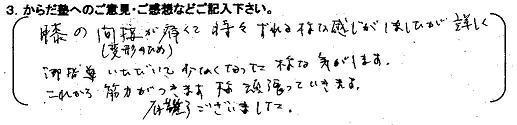 3. からだ塾へのご意見・ご感想などご記入下さい。
膝の向様が痛くて時々ずれる様な感じがしましたが詳しく
(変形のため)
御指導いただいて少なくなった様な気がします。
これから筋力がつきます様頑張っていきます。
有難うございました。